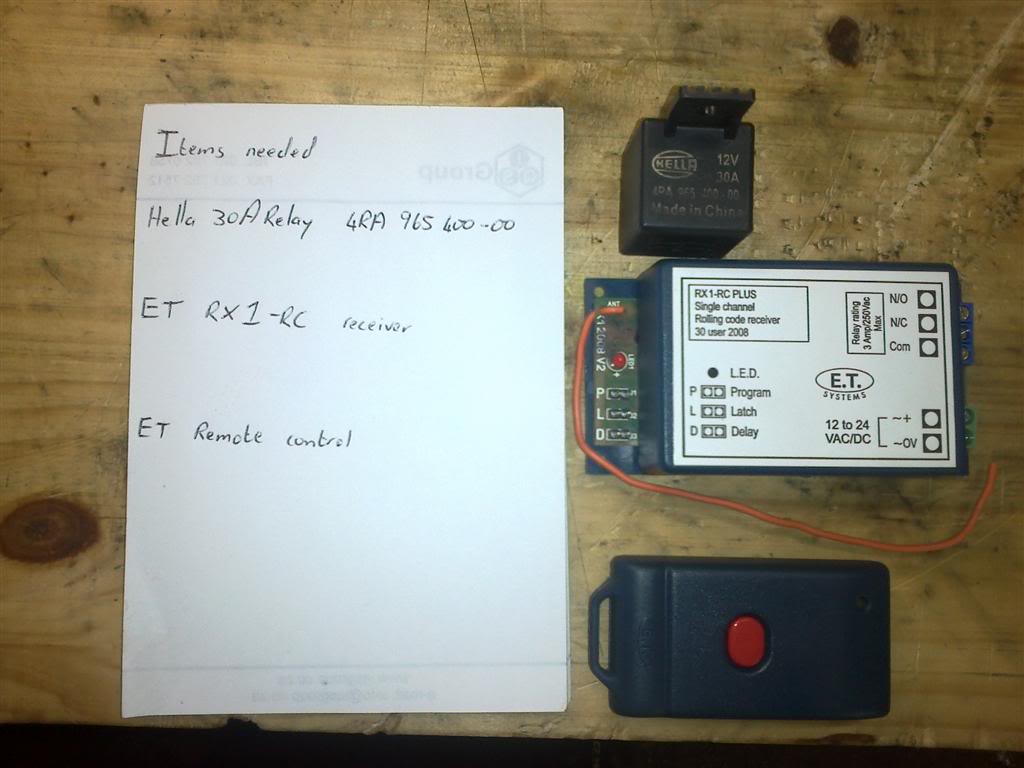 Items needed
Hella 30A Relay 4RA 965 400-00
ET RX1-RC receiver
ET Remote control
HELLA
12V
30A
4RA 965 400-00
Made in China
ANT
LED1
P J1
L J2
D J3
RX1-RC PLUS
Single channel
Rolling code receiver
30 user 2008
Relay rating
3 Amp/250Vac
Max
N/O
N/C
Com
L.E.D.
P Program
L Latch
D Delay
E.T.
SYSTEMS
12 to 24
VAC/DC
~+
~0V
Group